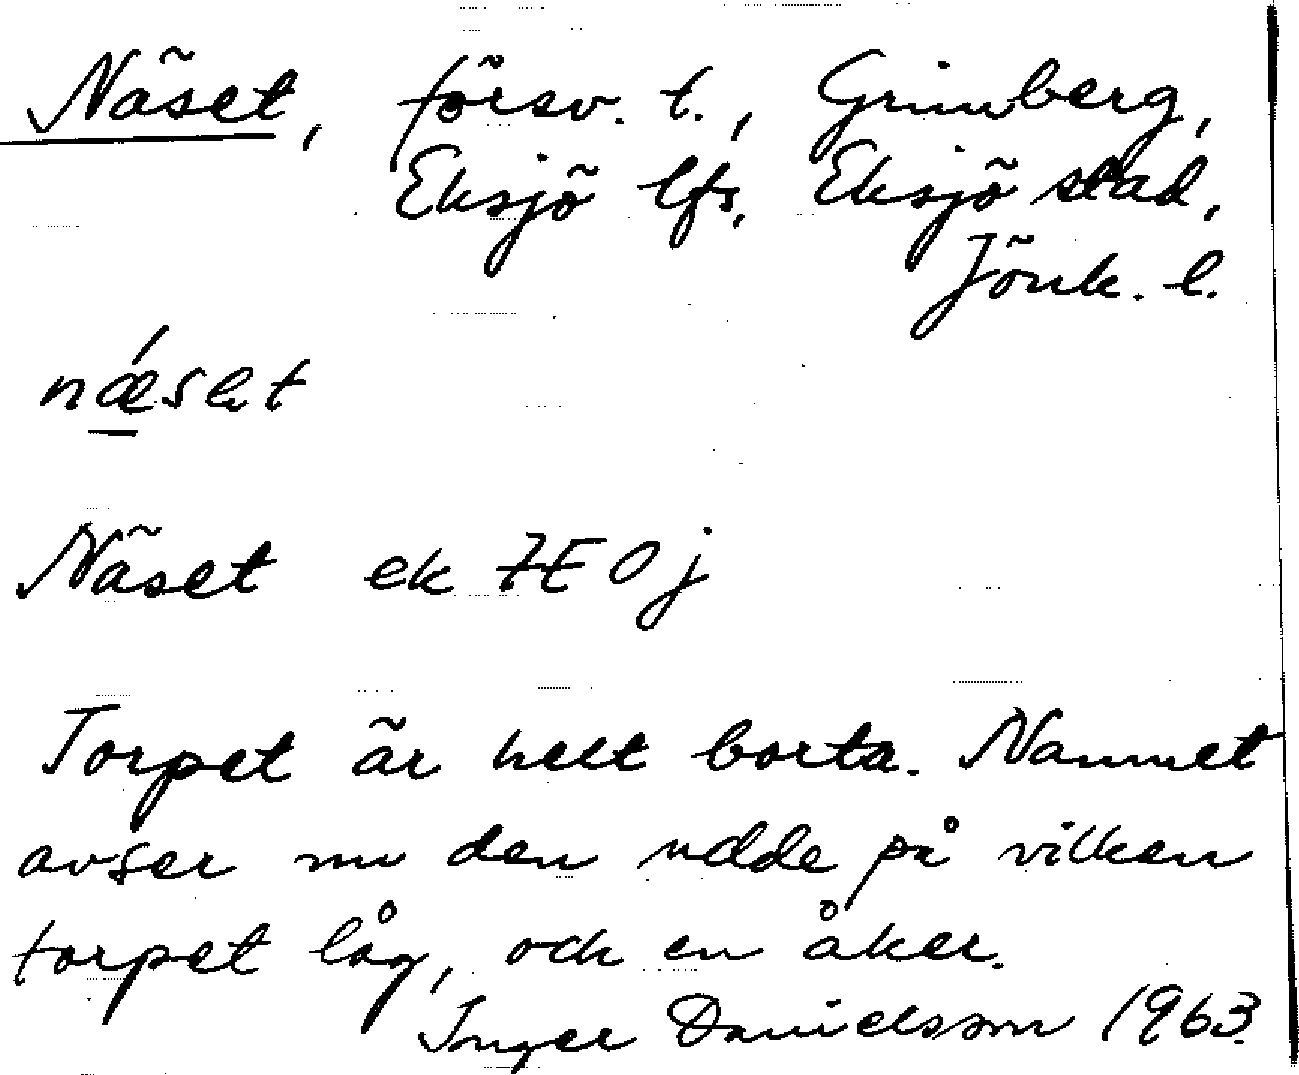 Näset, försv. t., Grimberg,
Eksjö lfs, Eksjö stad,
Jönk. l.
næ´set
Näset ek 7E0j
Torpet är helt borta. Namnet
avser nu den udde på vilken
torpet låg, och en åker.
Inger Danielsson 1963.